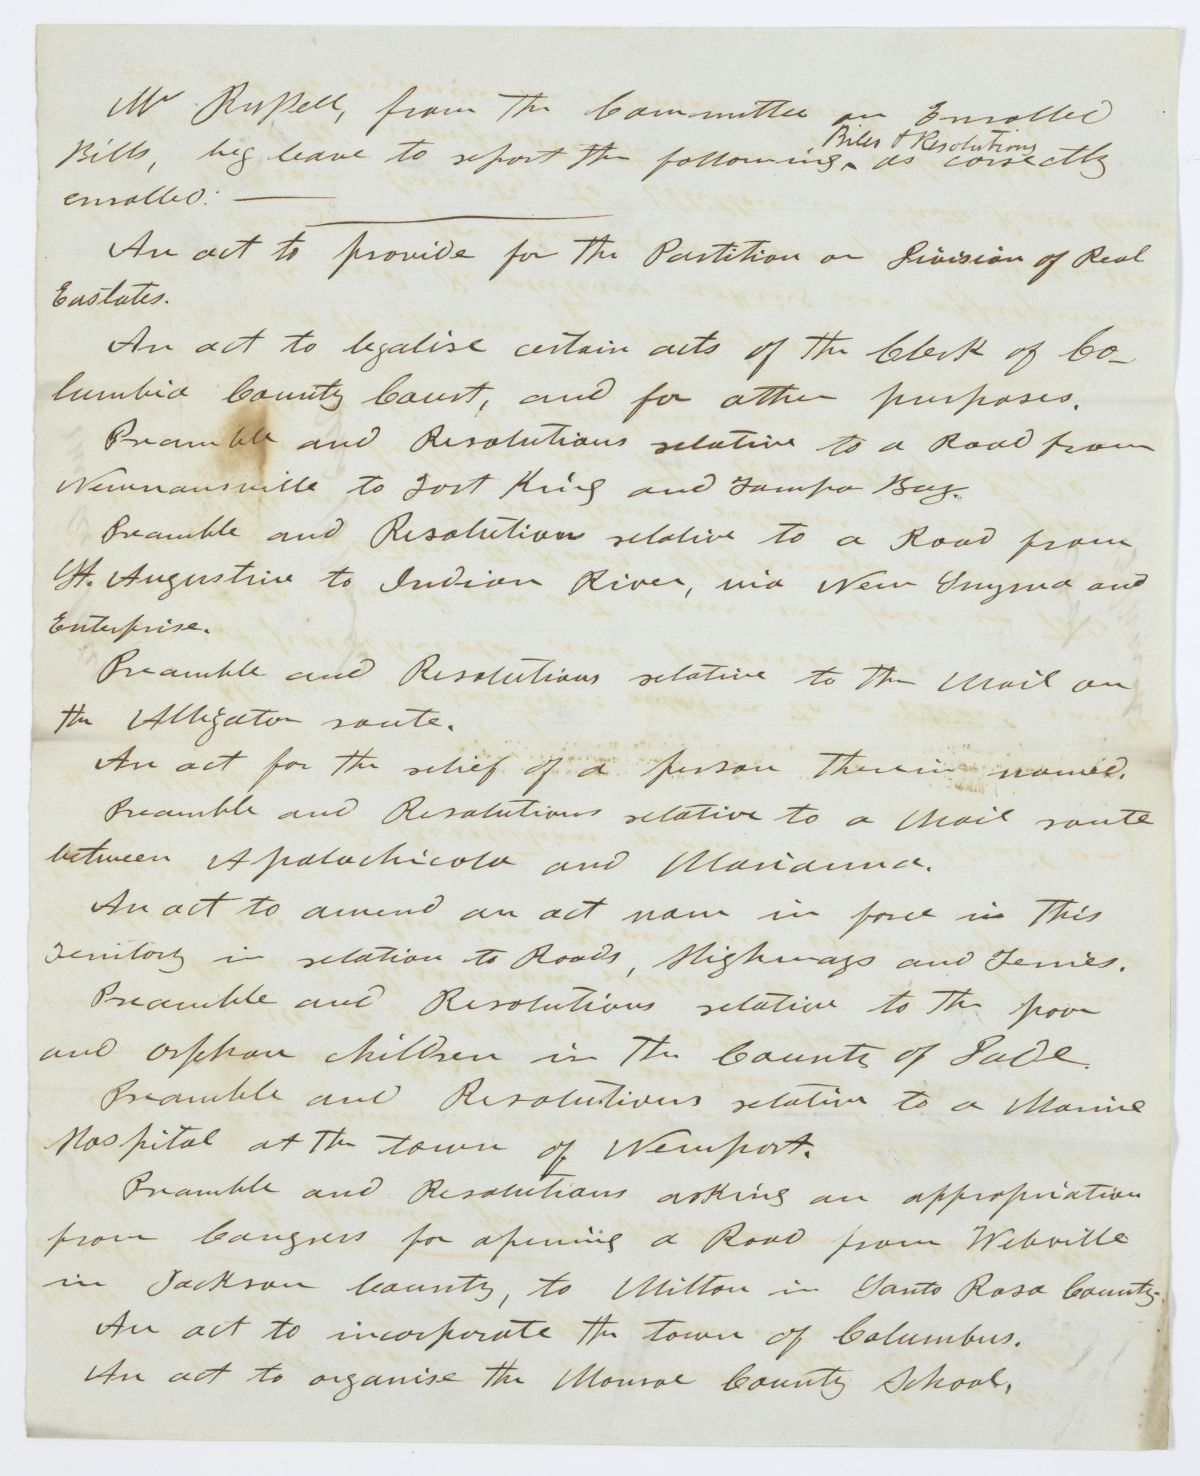 Mr Russell, from the Committee on Enrolled
Bills, beg leave to report the following ‸ Bills & Resolutions as correctly
enrolled: —
An act to provide for the Partition or Division of Real
Eastates.
An act to legalise certain acts of the Clerk of Co-
lumbia County Court, and for other purposes.
Preamble and Resolutions relative to a Road from
Newnansville to Fort King and Tampa Bay.
Preamble and Resolutions relative to a Road from
St. Augustine to Indian River, via New Smyrna and
Enterprise.
Preamble and Resolutions relative to the Mail on
the Alligator route.
An act for the relief of a person therein named.
Preamble and Resolutions relative to a Mail route
between Apalachicola and Marianna.
An act to amend an act now in force in this
Territory in relation to Roads, Highways and Ferries.
Preamble and Resolutions relative to the poor
and orphan children in the County of Dade.
Preamble and Resolutions relative to a Marine
Hospital at the town of Newport.
Preamble and Resolutions asking an appropriation
from Congress for opening a Road from Webville
in Jackson County, to Milton in Santa Rosa County.
An act to incorporate the town of Columbus.
An act to organise the Monroe County School.